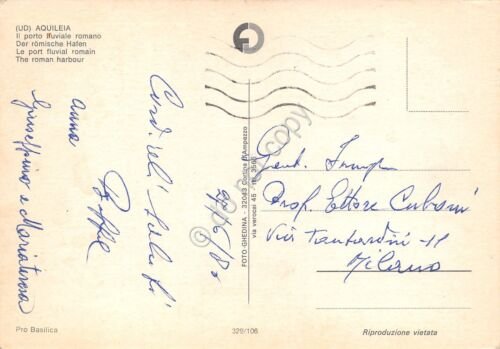 (UD) AQUILEIA
Il porto fluviale romano
Der römische Hafen
Le port fluvial romain
The roman harbour
Cordiali Saluti
anna
Giuseppino e Mariateresa
FOTO GHEDINA - 32043 Cortina d'Ampezzo
via verocai 45 - Tel. 3565
do not copy
Gent. Famiglia
Prof. Ettore
Via Tantardini
Milano
Pro Basilica
329/106
Riproduzione vietata